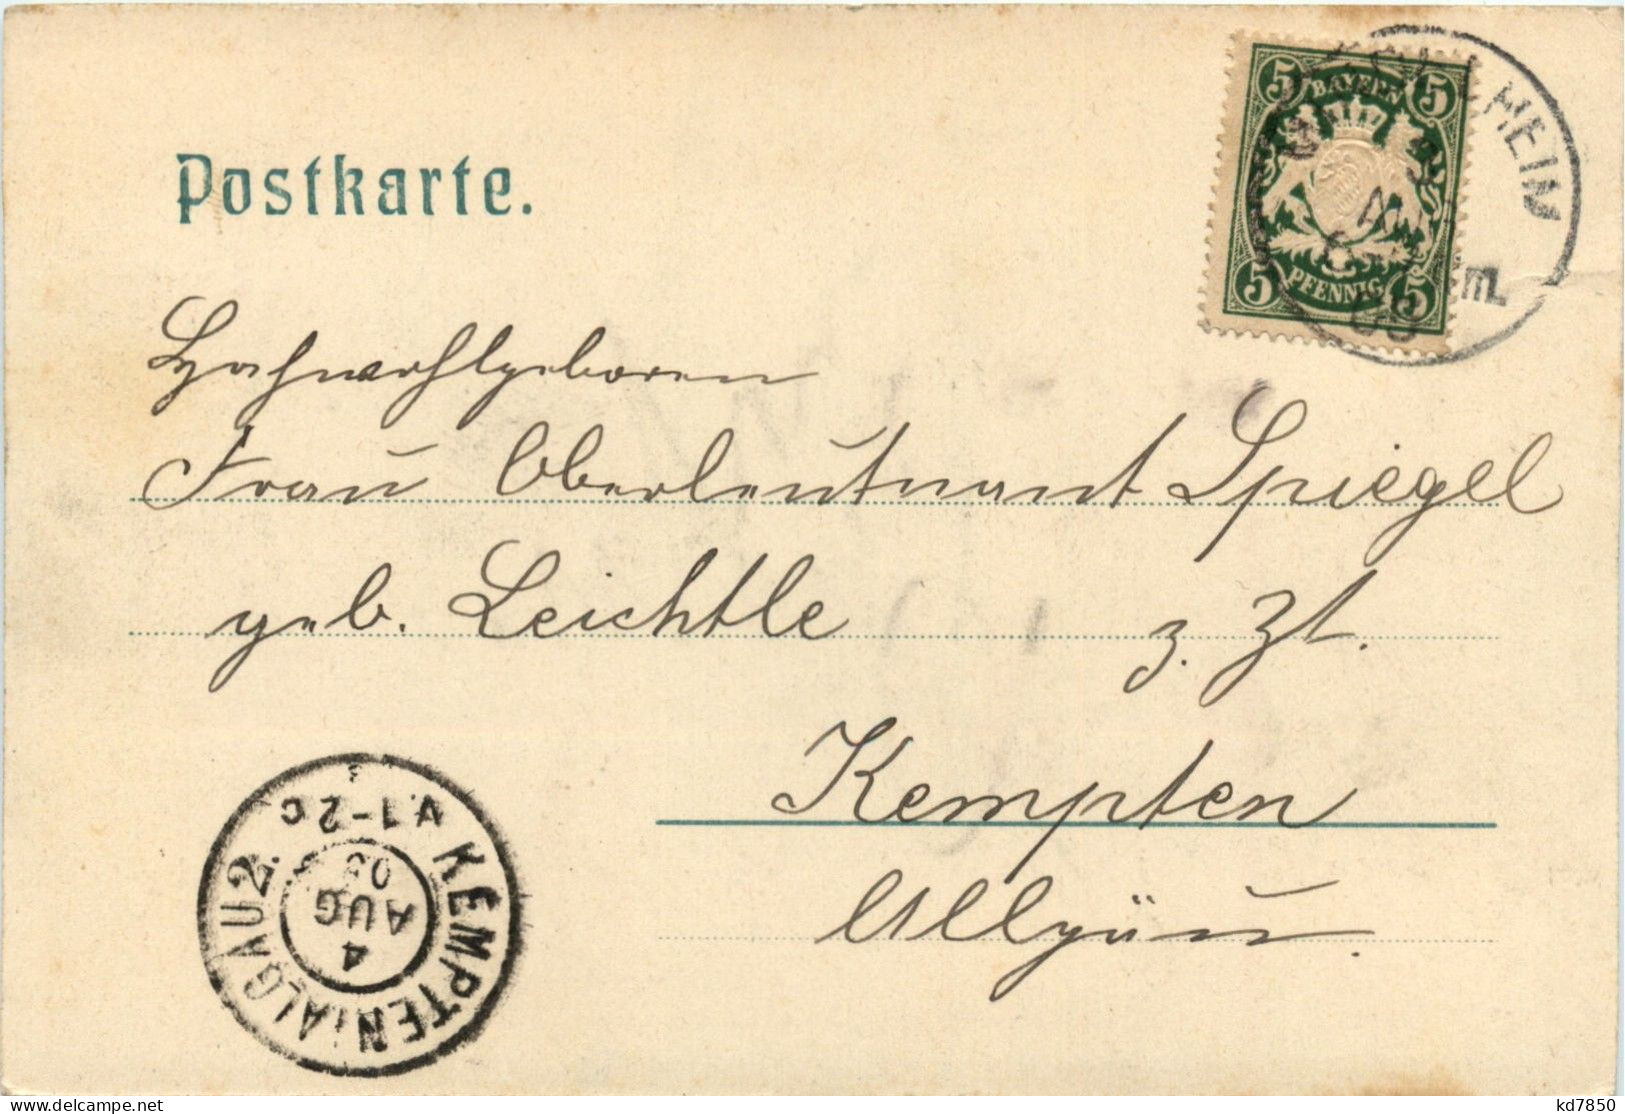 Postkarte.
5 BAYERN 5
5 PFENNIG 5
Hochwohlgeboren
Frau Oberleutnant Spiegel
geb. Leichtle z. Zt.
Kempten
Allgäu.
KEMPTEN (ALGÄU) 2.
4
AUG
03
V. 1-2
kd7850